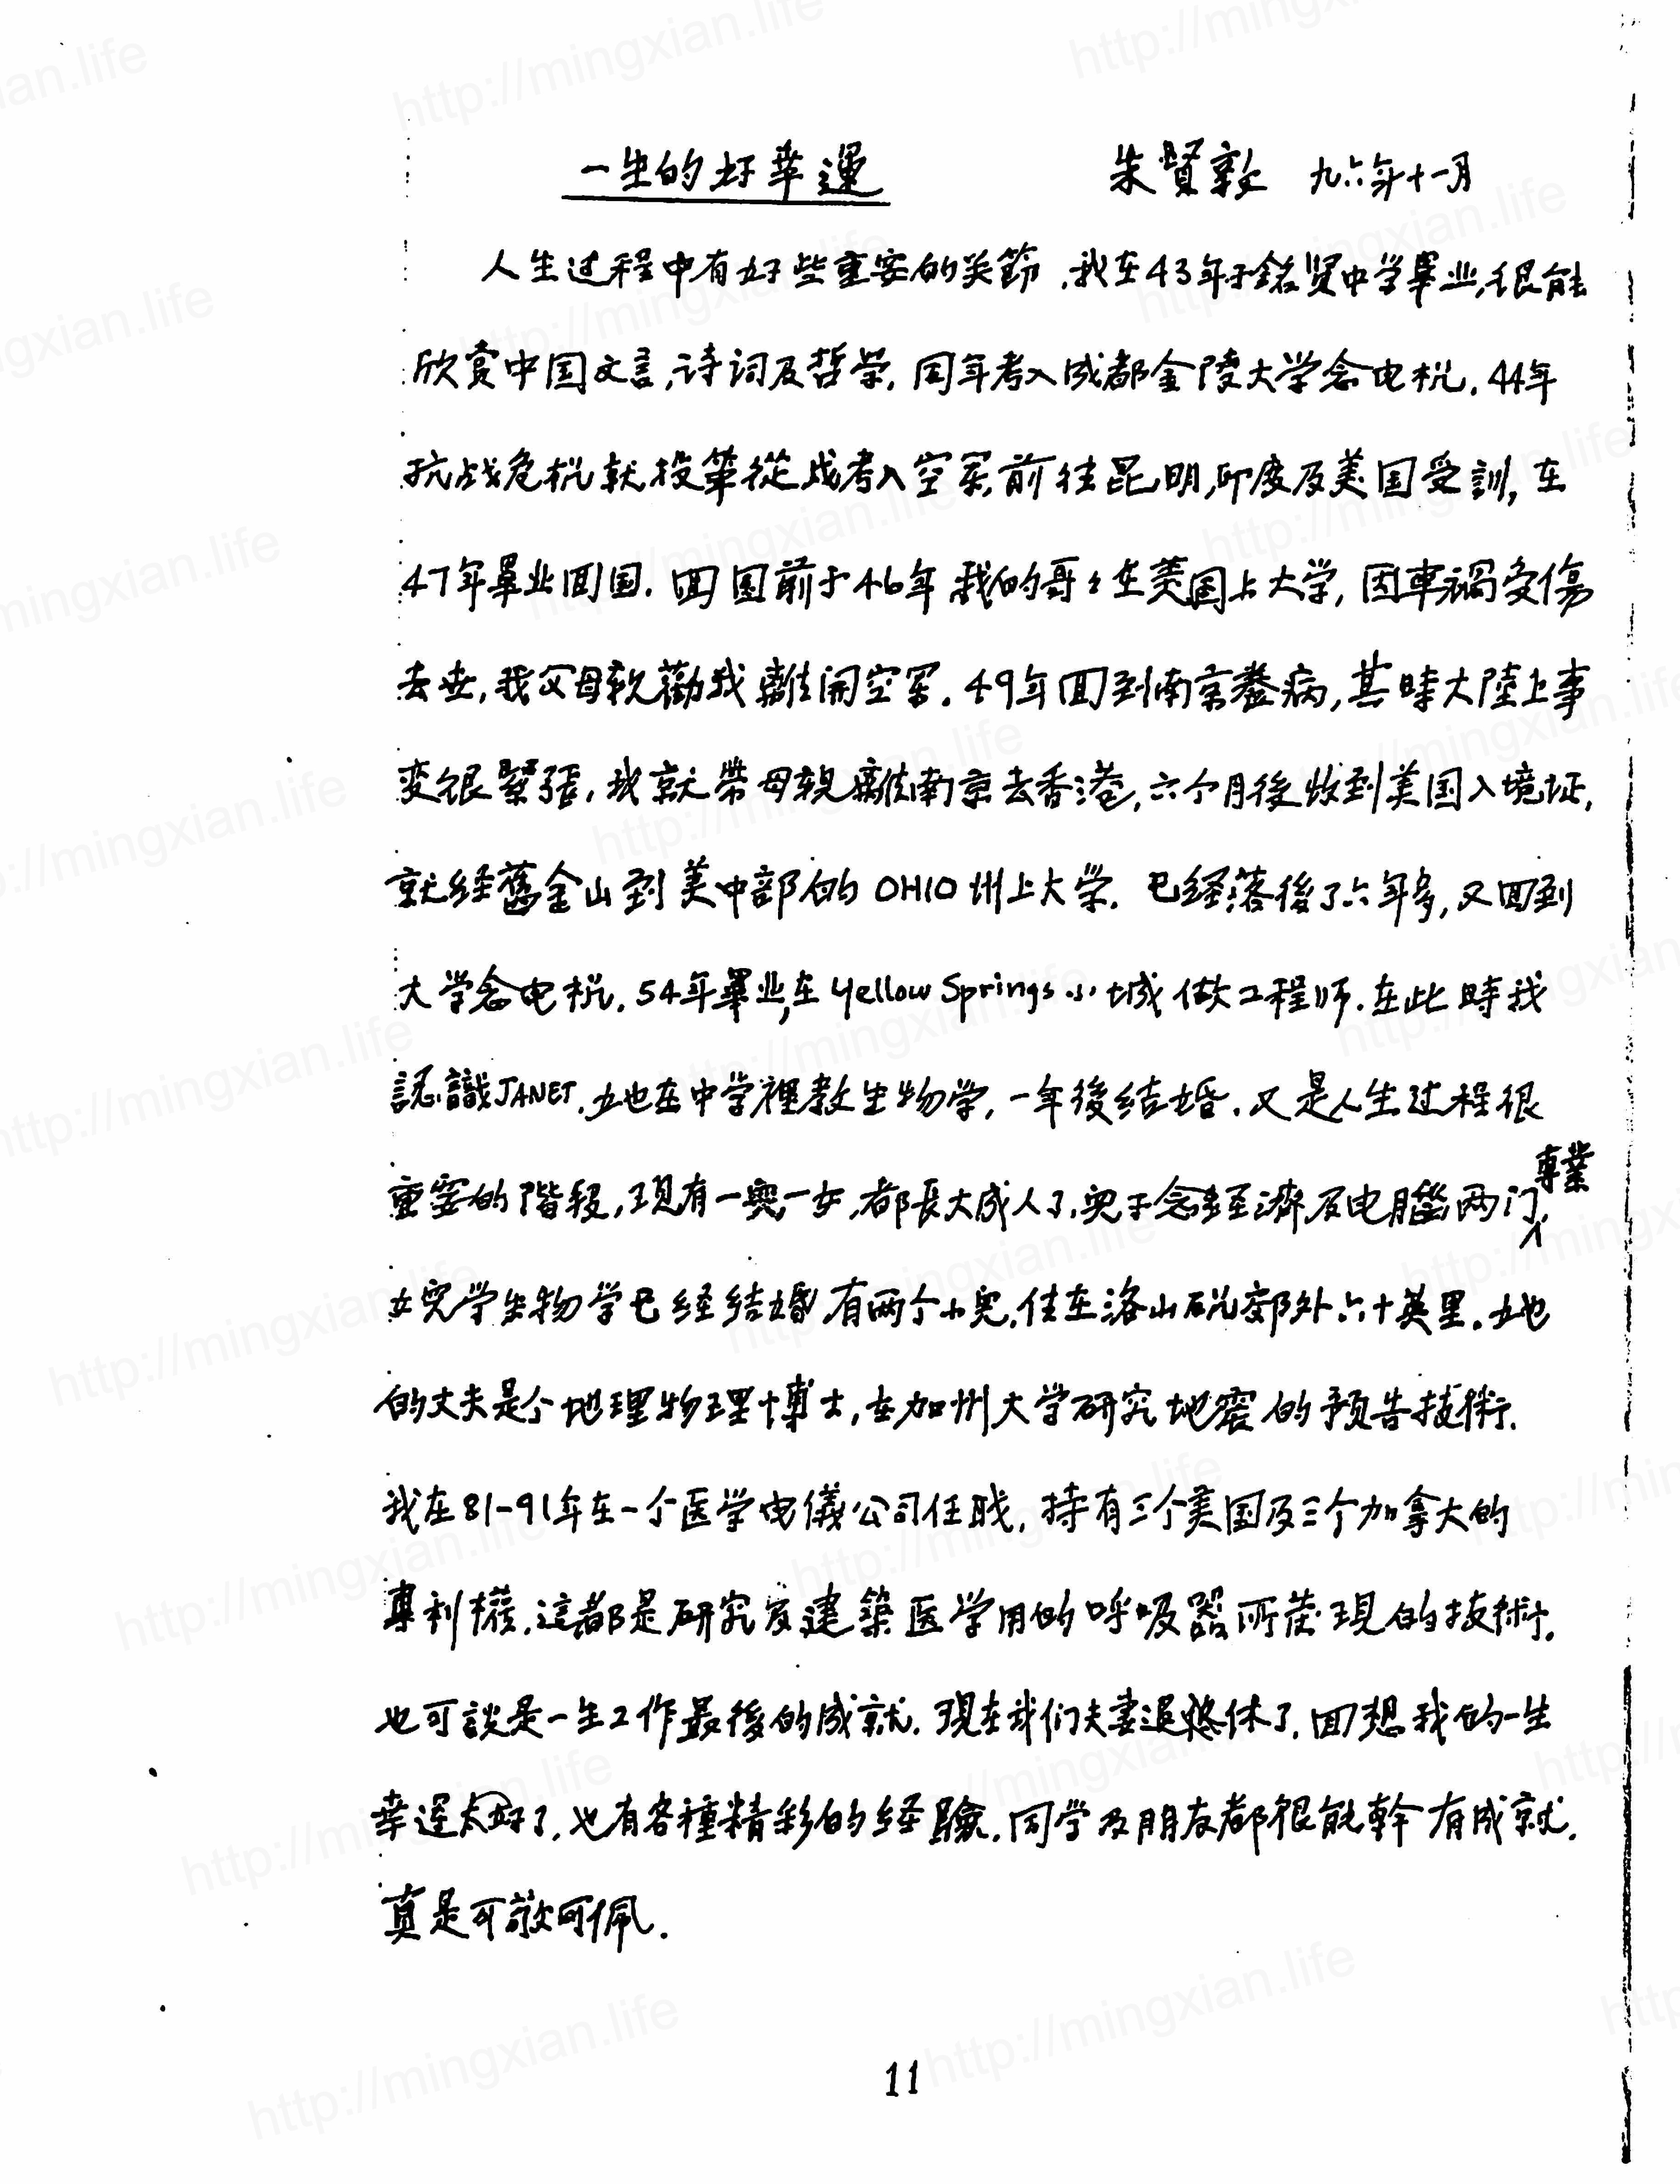 一生的好幸運 朱賢敦 九六年十一月
人生过程中有好些重要的关節.我在43年于銘贤中学畢业,很能
欣赏中国文言,诗词及哲学.同年考入成都金陵大学念电机.44年
抗战危机就投筆從戎考入空军,前往昆明,印度及美国受訓,在
47年畢业回国.回国前于46年我的哥々在美国上大学,因車禍受傷
去世,我父母就勸我離開空军.49年回到南京養病,其時大陸上事
变很緊張,我就带母親離南京去香港,六个月後收到美国入境证,
就经舊金山到美中部的OHIO州上大学.已经落後了六年多,又回到
大学念电机.54年畢业,在Yellow Springs小城做工程师.在此時我
認識JANET.她在中学裡教生物学,一年後结婚.又是人生过程很
重要的階段,現有一兒一女,都長大成人了.兒子念经濟及电腦两门專業,
女兒学生物学已经结婚有两个小兒.住在洛山矶郊外六十英里.她
的丈夫是个地理物理博士,在加州大学研究地震的预告技術.
我在81-91年在一个医学电儀公司任职,持有三个美国及三个加拿大的
專利權.這都是研究及建築医学用的呼吸器所發現的技術.
也可說是一生工作最後的成就.現在我们夫妻退休了.回想我的一生
幸运太好了,也有各種精彩的经驗.同学及朋友都很能幹有成就.
真是可敬可佩.
11
http://mingxian.life